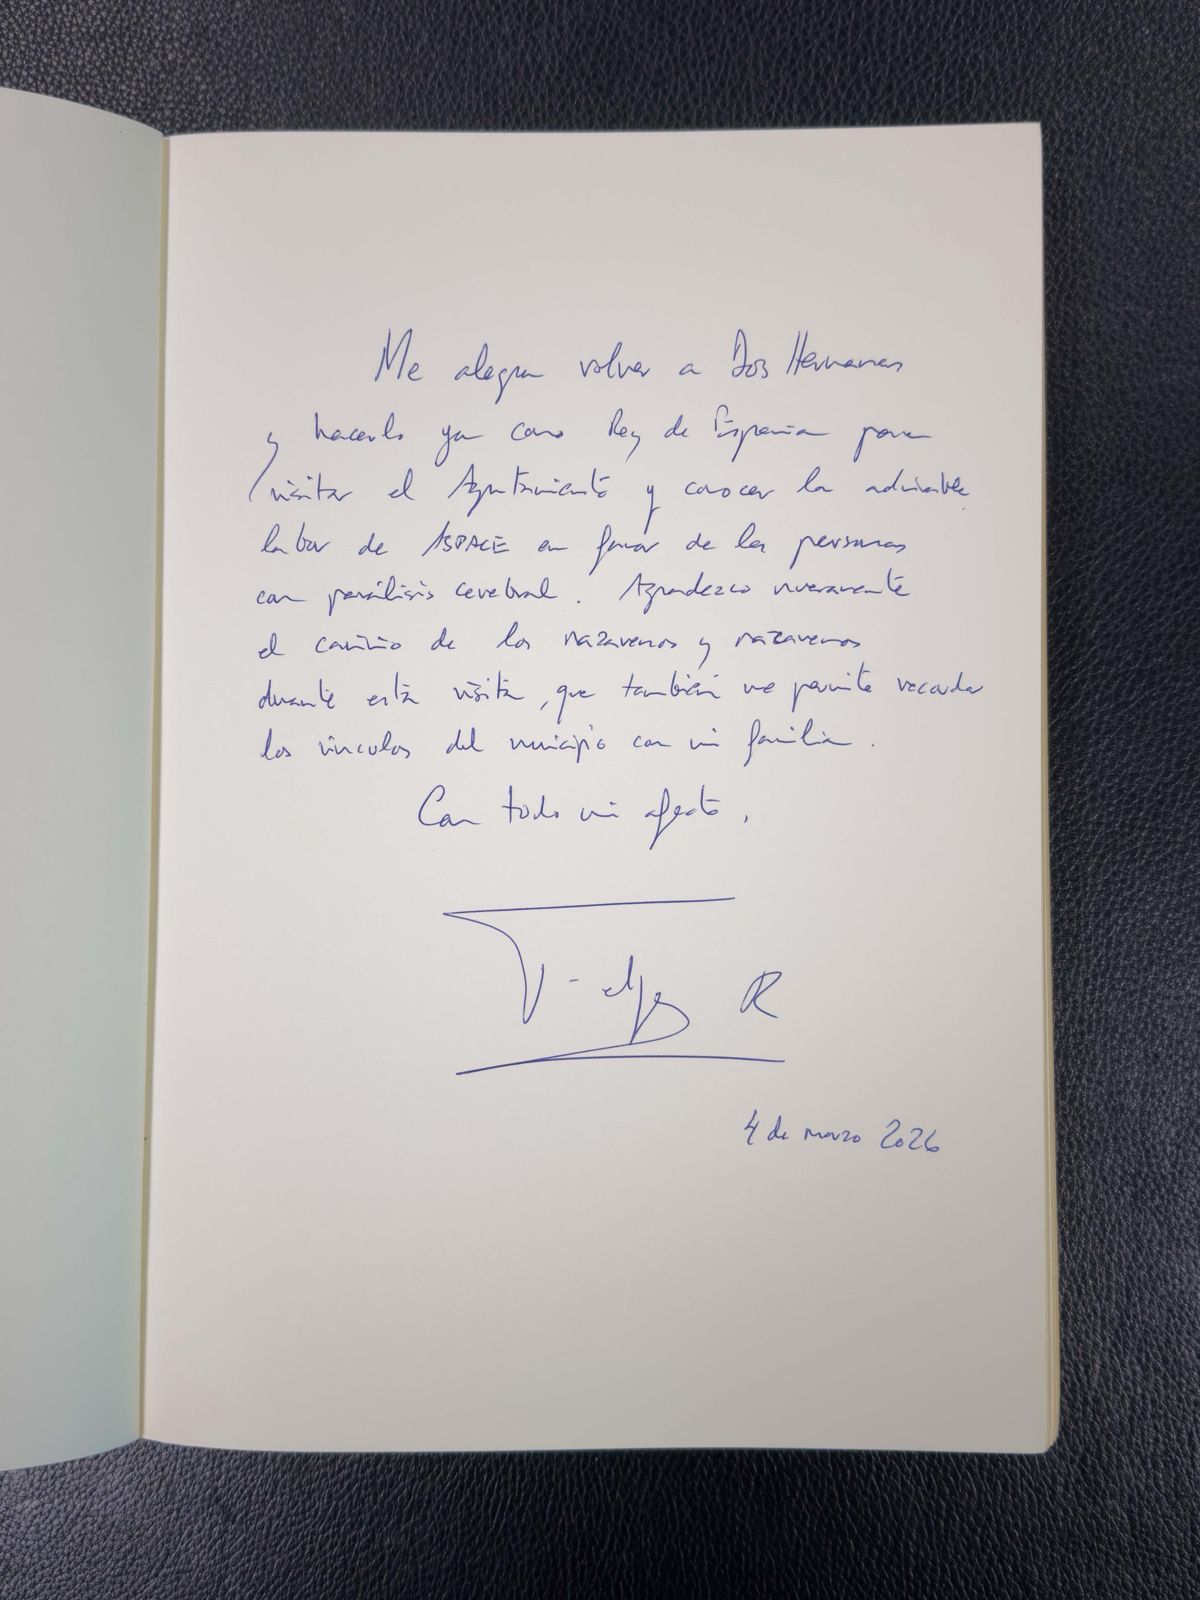 Me alegra volver a Dos Hermanas
y hacerlo ya como Rey de España para
visitar el Ayuntamiento y conocer la admirable
labor de ASPACE en favor de las personas
con parálisis cerebral. Agradezco nuevamente
el cariño de los nazarenos y nazarenas
durante esta visita, que también me permite recordar
los vínculos del municipio con mi familia.
Con todo mi afecto,
Felipe R
4 de marzo 2026